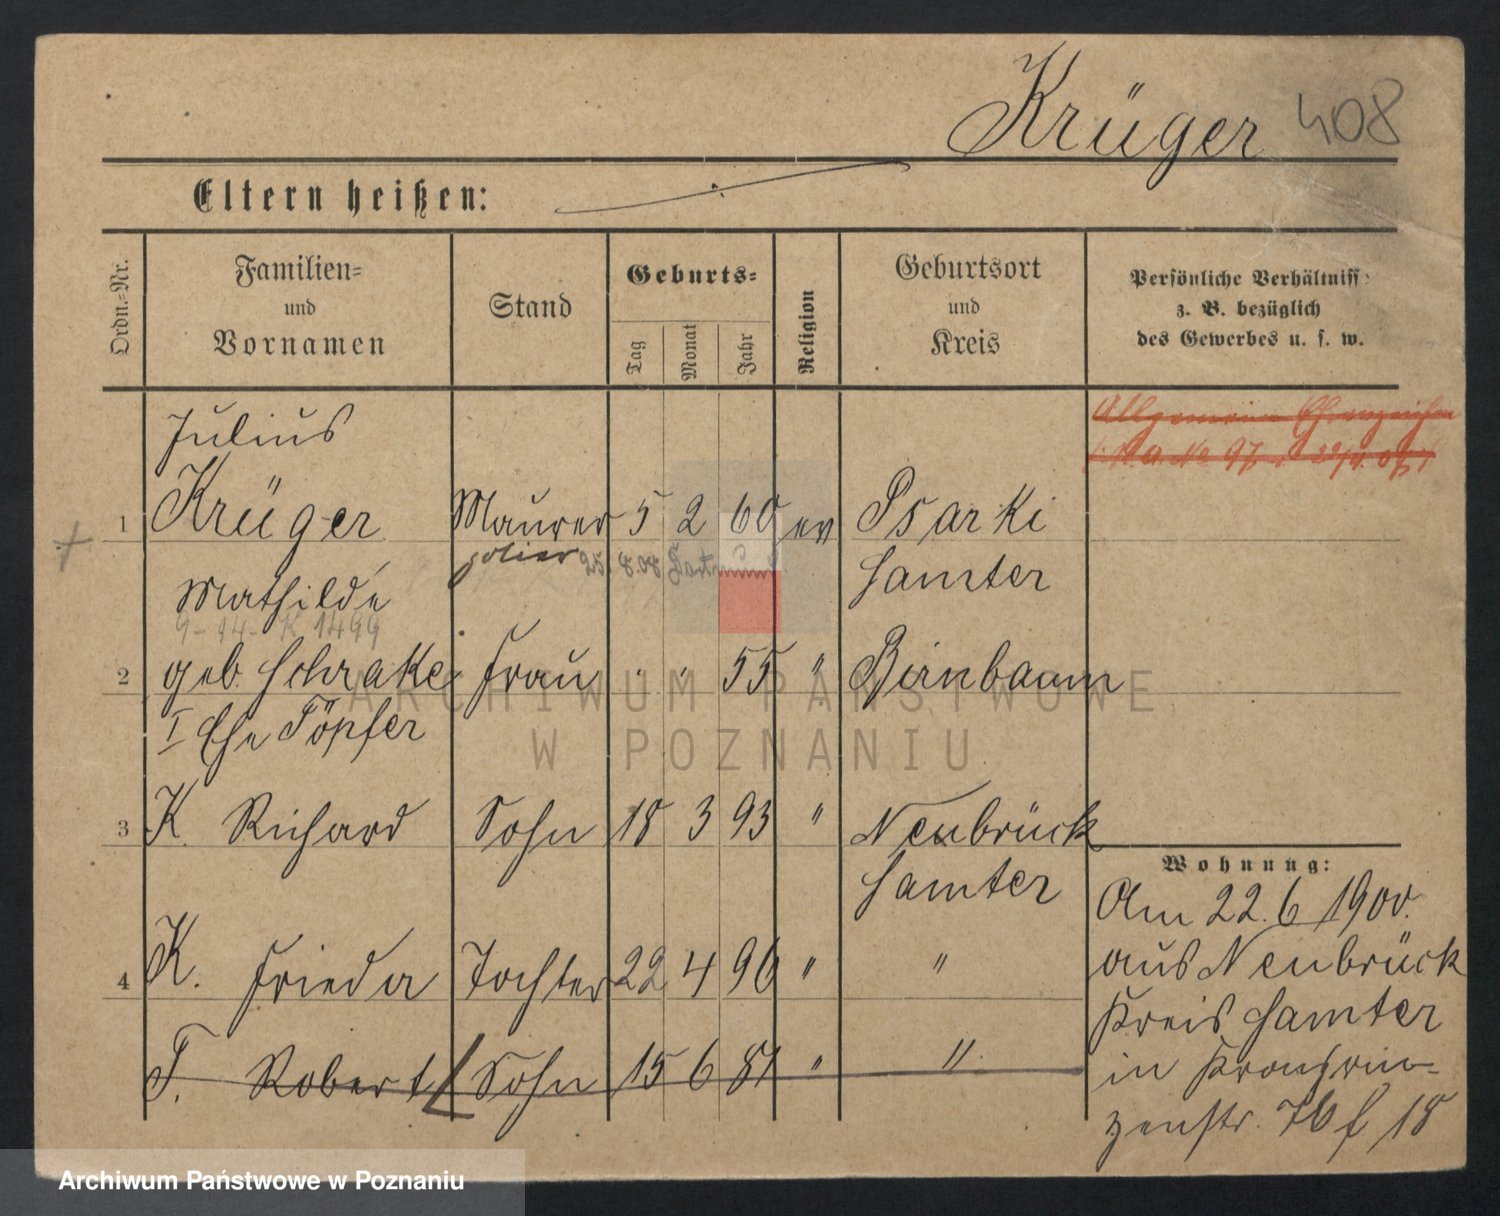 Krüger 408
Eltern heißen:
Ordn.-Nr.
Familien-
und
Vornamen
Stand
Geburts-
Tag
Monat
Jahr
Religion
Geburtsort
und
Kreis
Persönliche Verhältniss
z. B. bezüglich
des Gewerbes u. s. w.
Allgemeine Ehrenzeichen
Julius
1 Krüger Maurer 5 2 60 ev Psarki
polier
Samter
Mathilde
9-14- K 1499
2 geb. Schrake Frau " " 55 " Birnbaum
I Ehe Töpfer
3 K Richard Sohn 18 3 93 " Neubrück
Samter
4 K. Frieda Tochter 22 4 96 " "
T. Robert Sohn 15 6 81 " "
Wohnung:
Am 22.6 1900.
aus Neubrück
Kreis Samter
in Kronprin-
zenstr. 76 f 18
ARCHIWUM PAŃSTWOWE
W POZNANIU
Archiwum Państwowe w Poznaniu